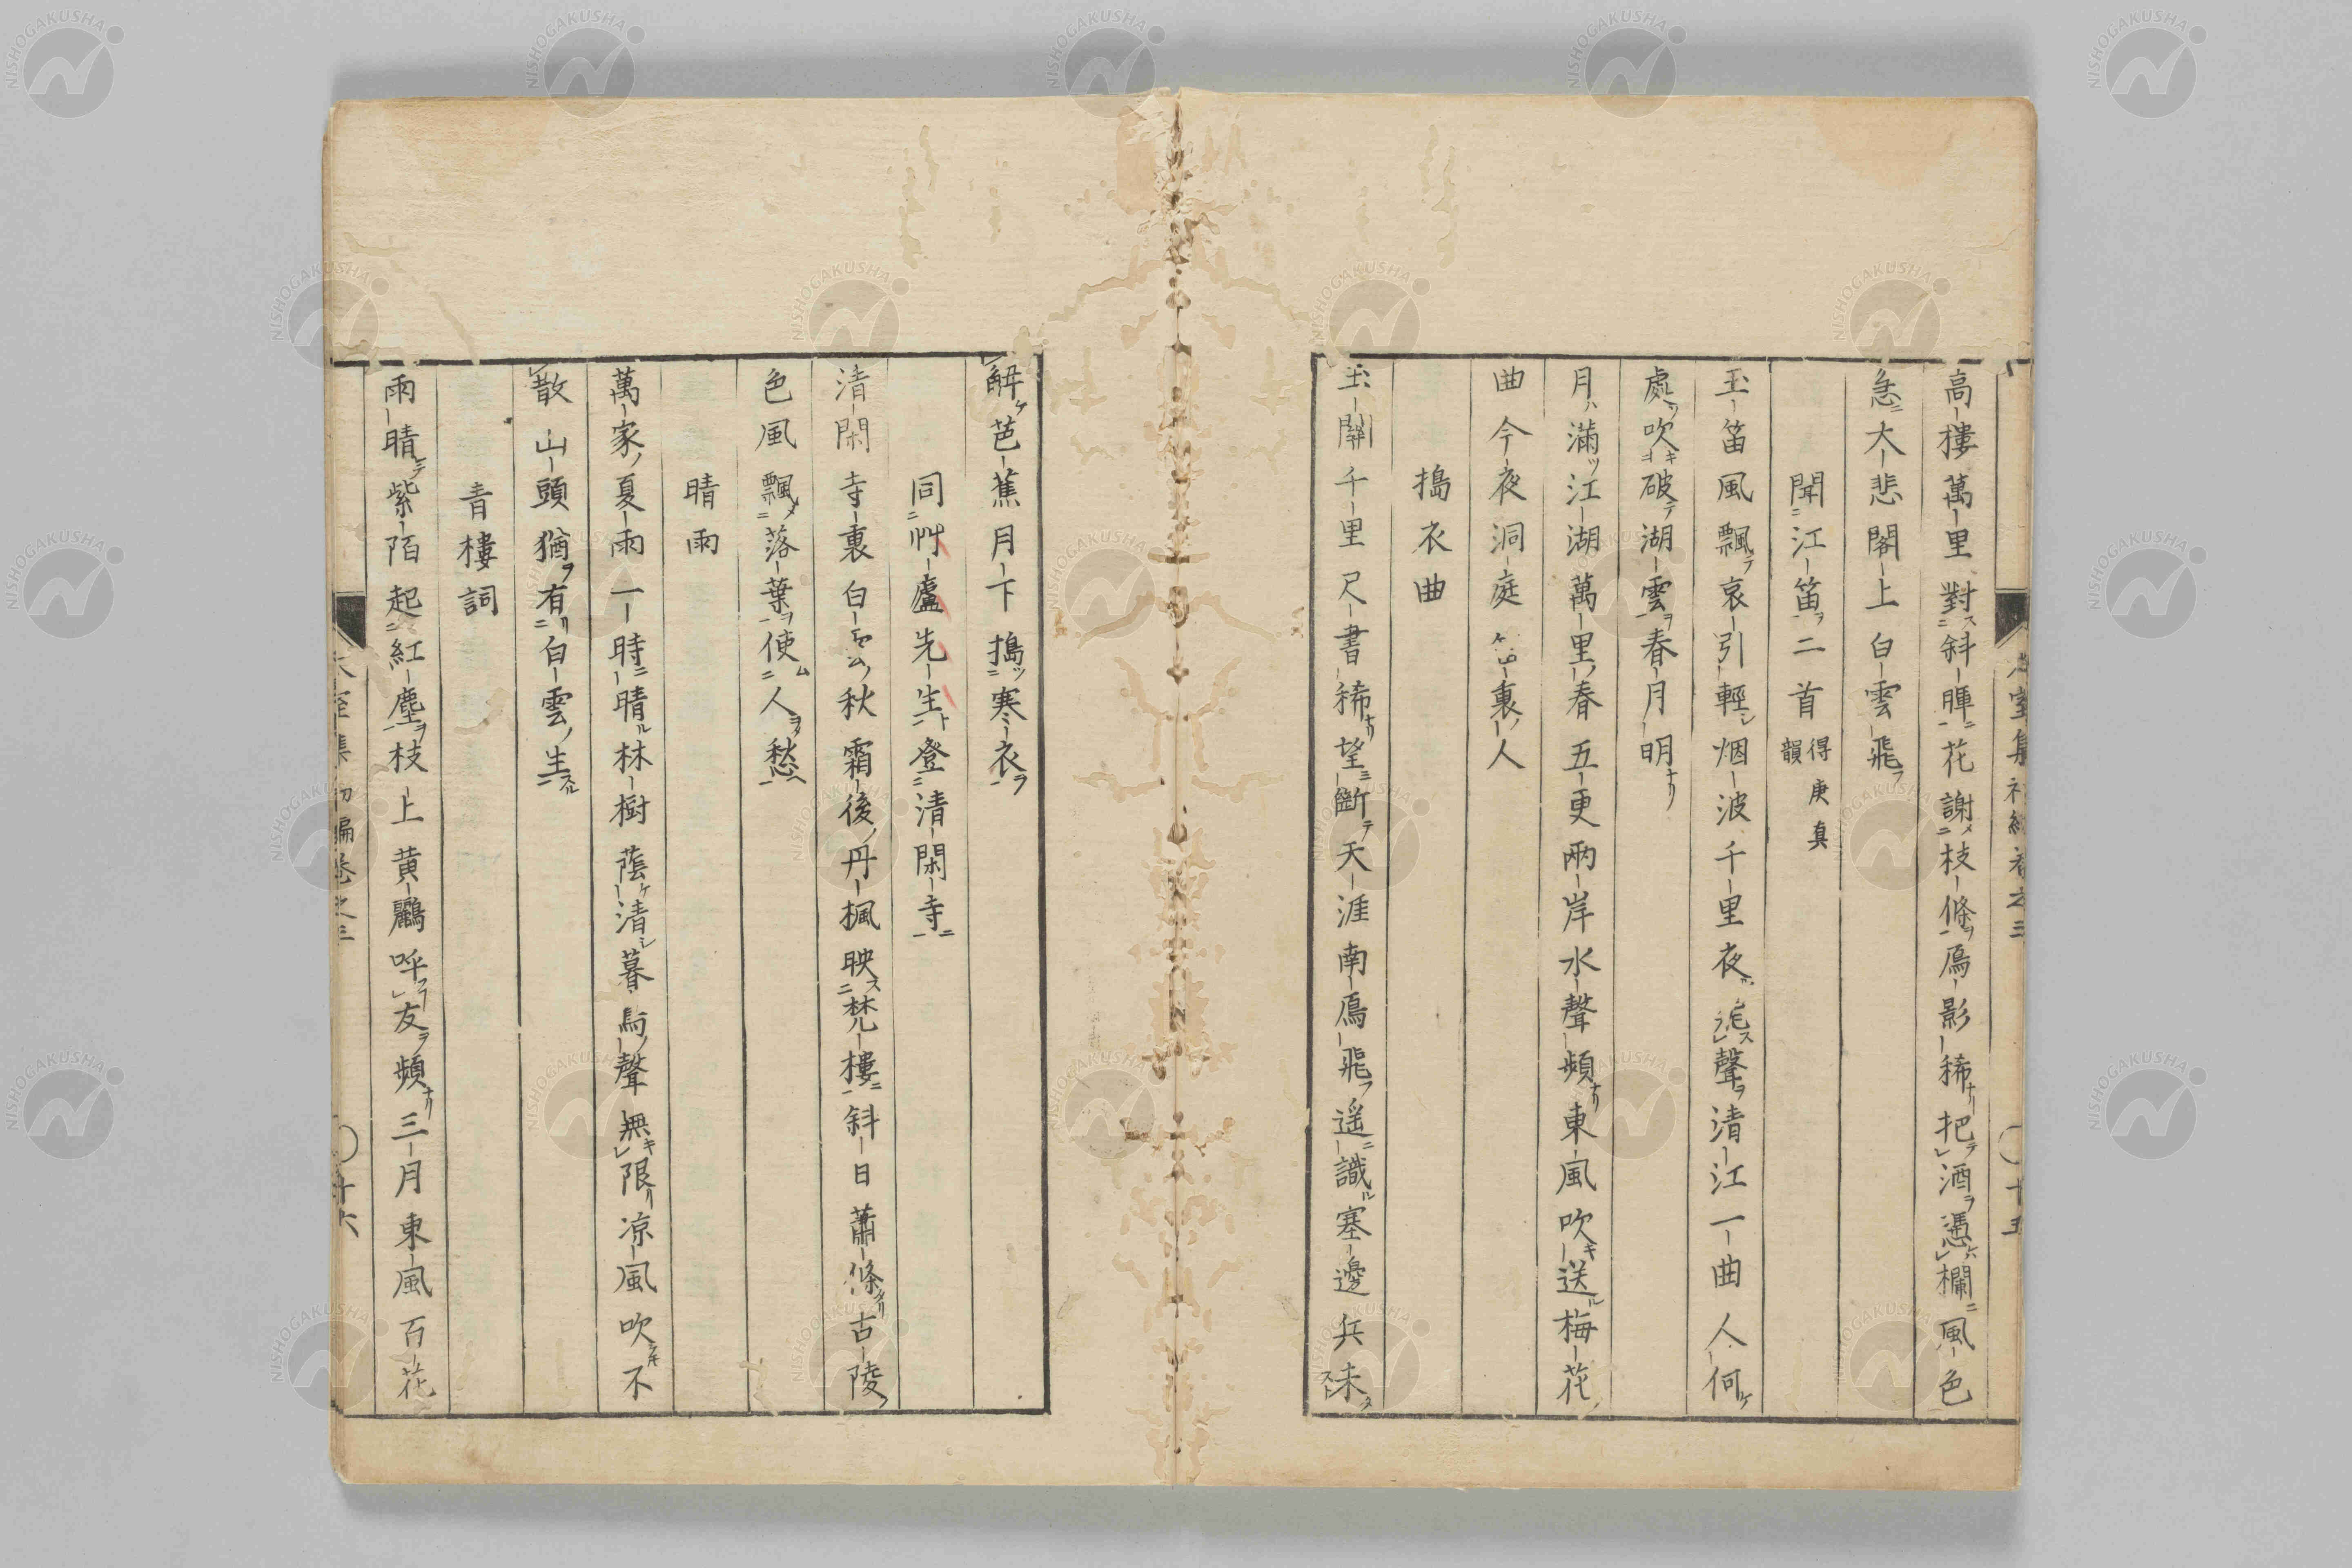 高樓萬里對斜暉花謝枝條鳫影稀把酒憑欄風色
急大悲閣上白雲飛
聞江笛二首 得庚真韻
玉笛風飄哀引輕烟波千里夜聲清江一曲人何
處吹破湖雲春月明
月滿江湖萬里春五更兩岸水聲頻東風吹送梅花
曲今夜洞庭裏人
搗衣曲
玉關千里尺書稀望斷天涯南鳫飛遥識塞邊兵未
觧芭蕉月下搗寒衣
同艸廬先生登清閑寺
清閑寺裏白雲秋霜後丹楓映梵樓斜日蕭條古陵
色風飄落葉使人愁
晴雨
萬家夏雨一時晴林樹蔭清暮蟬聲無限凉風吹不
散山頭猶有白雲生
青樓詞
雨晴紫陌起紅塵枝上黄鸝呼友頻三月東風百花
集初編卷之三 十五
集初編卷之三 十六
NISHOGAKUSHA